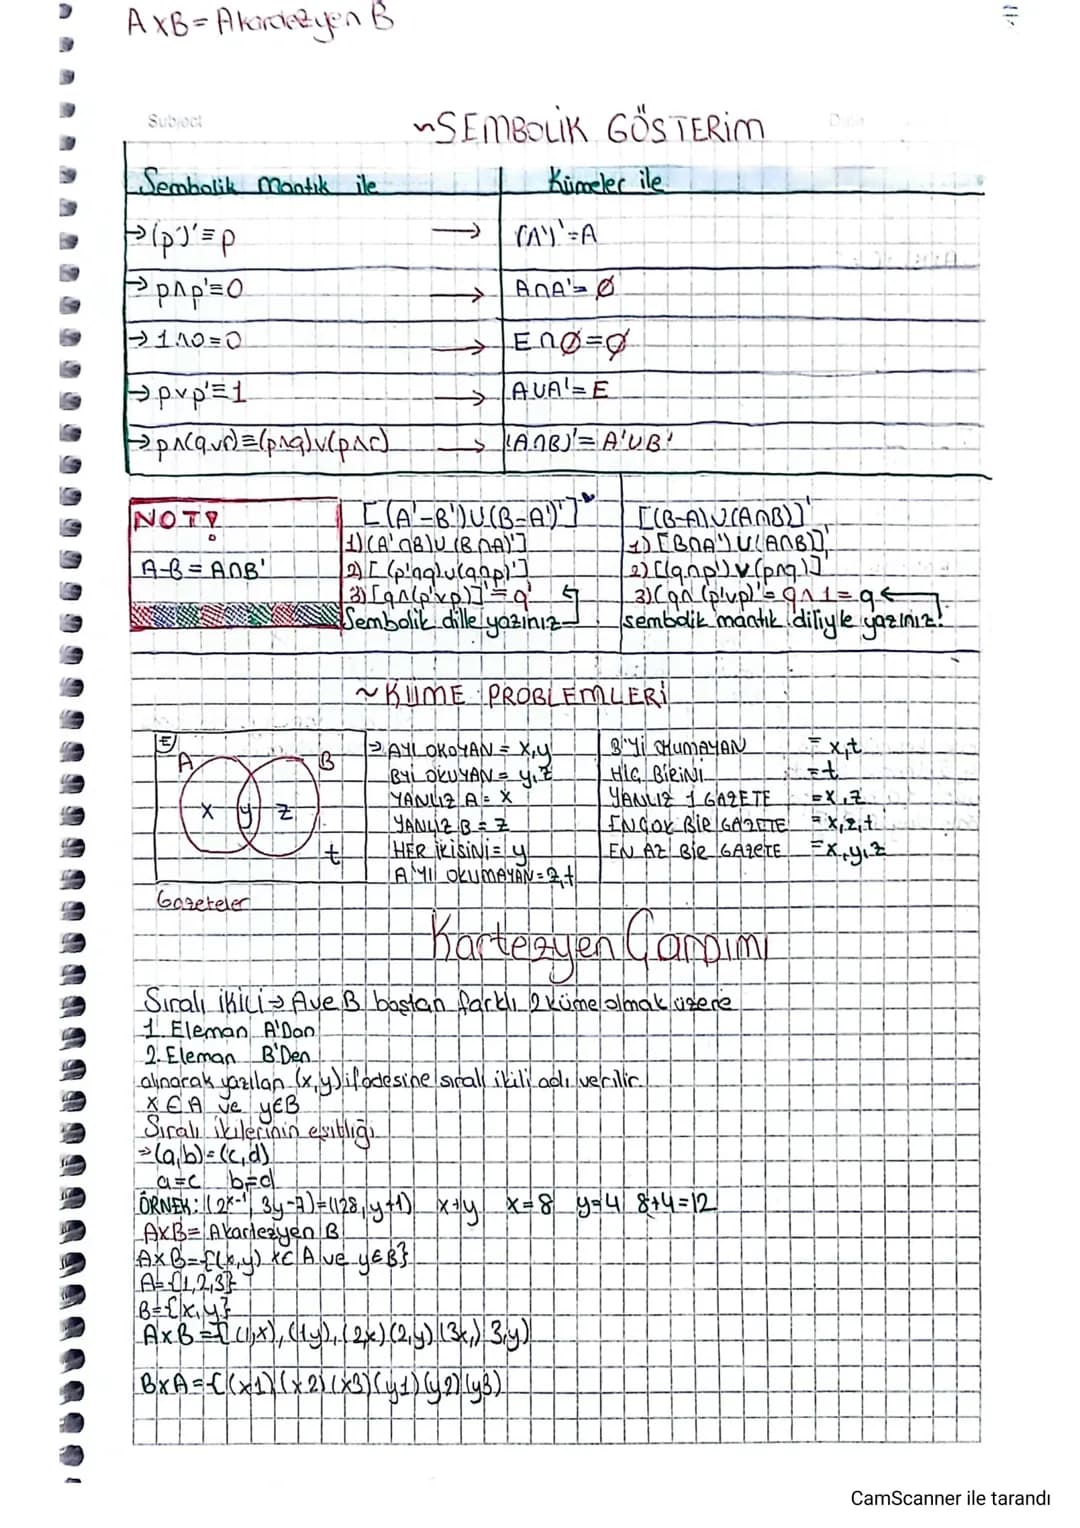 AxB= Akardezyen B
Subject
~SEMBOLİK GÖSTERİM
Sembolik mantık ile
Kümeler ile
→(p')'≡p → (A')'=A
→p∧p'≡0 → A∩A'=Ø
→1∧0=0 → E∩Ø=Ø
→p∨p'≡1 → A∪A'=E
→p∧(q∨r)≡(p∧q)∨(p∧r) → (A∩B)'=A'∪B'
NOT!
A-B=A∩B'
[(A'-B')∪(B-A')']'
1)(A'∩B)∪(B∩A)']
2)[(p'∧q)∨(q∧p)']
3)[q∧(p'∨p)]'≡q'
Sembolik dille yazınız
[(B-A)∪(A∩B)]'
1)[B∩A')∪(A∩B)]'
2)[(q∧p')∨(p∧q)]'
3)(q∧(p'∨p)'=q∧1=q
sembolik mantık diliyle yazınız!
~KÜME PROBLEMLERİ
E
A
B
x y z
t
Gazeteler
⇒AYI OKUYAN = x,y
BYİ OKUYAN = y,z
YANLIZ A = X
YANLIZ B = Z
HER İKİSİNİ = y
A'YI OKUMAYAN = z,t
B'Yİ OKUMAYAN = x,t
HİÇ BİRİNİ =t
YANLIZ 1 GAZETE =x,z
EN ÇOK BİR GAZETE =x,z,t
EN AZ BİR GAZETE =x,y,z
Kartezyen Çarpımı
Sıralı ikili⇒ A ve B boştan farklı 2 küme olmak üzere
1. Eleman A'Dan
2. Eleman B'Den
alınarak yazılan (x,y) ifadesine sıralı ikili adı verilir.
x∈A ve y∈B
Sıralı ikilerinin eşitliği
⇒(a,b)=(c,d)
a=c b=d
ÖRNEK: (2ˣ⁻¹, 3y-7)=(128,y+1) x+y x=8 y=4 8+4=12
AxB= Akartezyen B
AxB={(x,y) x∈A ve y∈B}
A={1,2,3}
B={x,y}
AxB={(1,x),(1y),(2x)(2,y)(3x,) 3,y)
BxA={(x1)(x2)(x3)(y1)(y2)(y3)
CamScanner ile tarandı